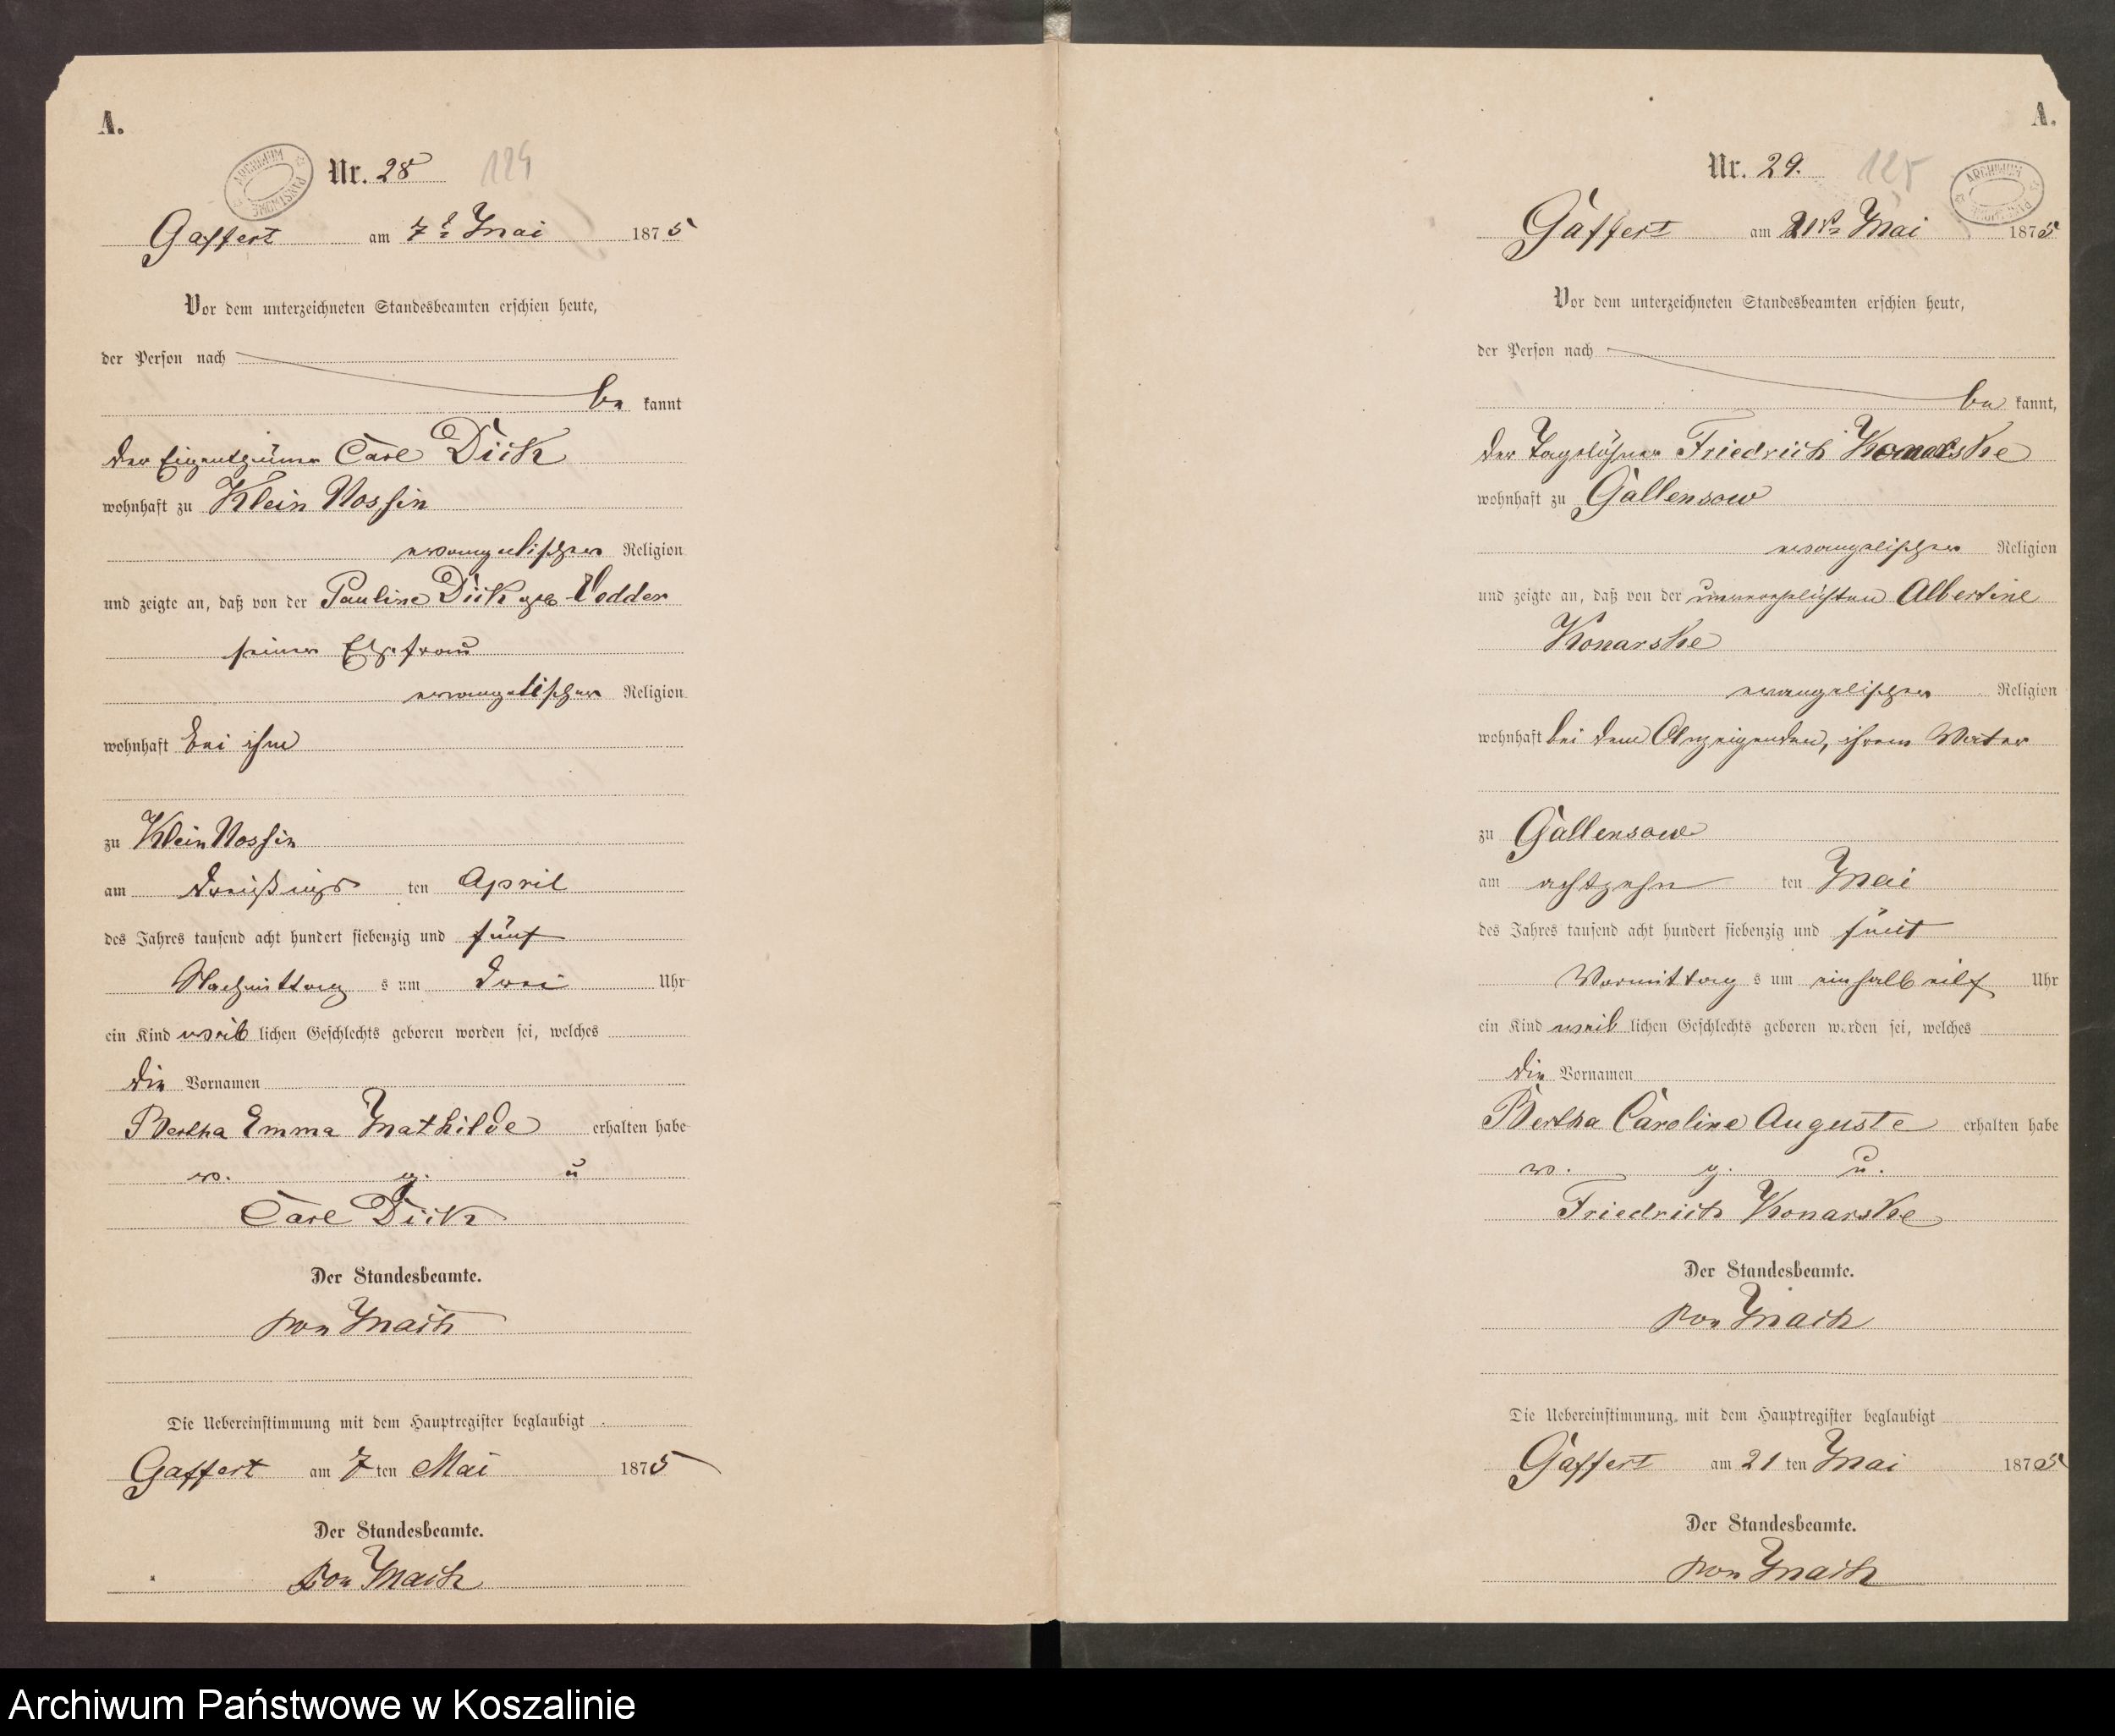 A.
ARCHIWUM PAŃSTWOWE
Nr. 28 124
Gaffert am 7t Mai 1875
Vor dem unterzeichneten Standesbeamten erschien heute,
der Person nach
be kannt
der Eigenthümer Carl Dick
wohnhaft zu Klein Nossin
evangelischer Religion
und zeigte an, daß von der Pauline Dick geb Vedder
seiner Ehefrau
evangelischer Religion
wohnhaft bei ihm
zu Klein Nossin
am dreißigs ten April
des Jahres tausend acht hundert siebenzig und fünf
Nachmittag s um drei Uhr
ein Kind weib lichen Geschlechts geboren worden sei, welches
die Vornamen
Bertha Emma Mathilde erhalten habe
v. g. u
Carl Dick
Der Standesbeamte.
von Mach
Die Uebereinstimmung mit dem Hauptregister beglaubigt
Gaffert am 7 ten Mai 1875
Der Standesbeamte.
von Mach
A.
Nr. 29. 125
ARCHIWUM PAŃSTWOWE
Gaffert am 21t Mai 1875
Vor dem unterzeichneten Standesbeamten erschien heute,
der Person nach
be kannt,
der Tagelöhner Friedrich Konarske
wohnhaft zu Gallensow
evangelischer Religion
und zeigte an, daß von der unverehelichten Albertine
Konarske
evangelischer Religion
wohnhaft bei dem Anzeigenden, ihrem Vater
zu Gallensow
am achtzehn ten Mai
des Jahres tausend acht hundert siebenzig und fünf
Vormittag s um einhalb eilf Uhr
ein Kind weib lichen Geschlechts geboren worden sei, welches
die Vornamen
Bertha Caroline Auguste erhalten habe
v. g. u.
Friedrich Konarske
Der Standesbeamte.
von Mach
Die Uebereinstimmung mit dem Hauptregister beglaubigt
Gaffert am 21 ten Mai 1875
Der Standesbeamte.
von Mach
Archiwum Państwowe w Koszalinie